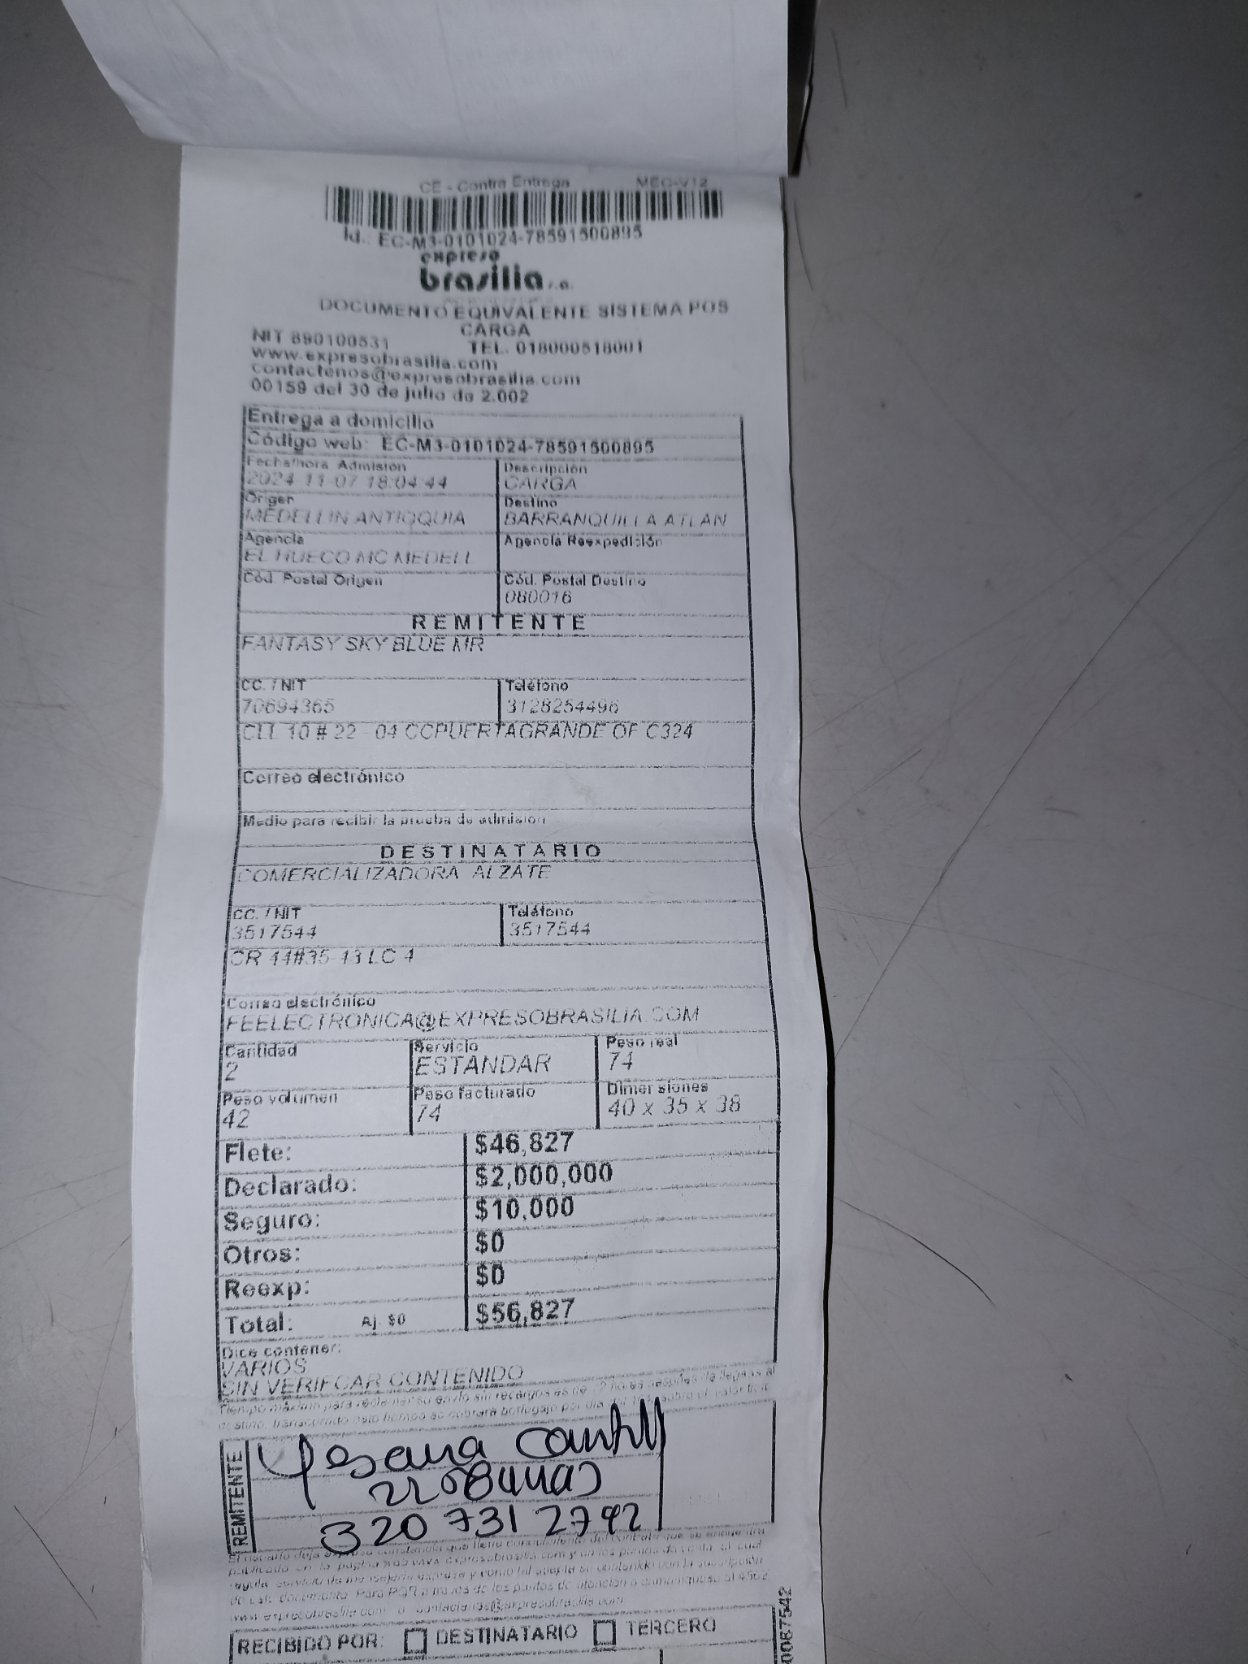 CE - Contra Entrega MEC-V12
Id.: EC-M3-0101024-78591500895
expreso
brasilia s.a.
DOCUMENTO EQUIVALENTE SISTEMA POS
CARGA
NIT 890100531 TEL. 018000518001
www.expresobrasilia.com
contactenos@expresobrasilia.com
00159 del 30 de julio de 2.002
Entrega a domicilio
Código web: EC-M3-0101024-78591500895
Fecha/hora Admisión Descripción
2024-11-07 18:04:44 CARGA
Origen Destino
MEDELLIN ANTIOQUIA BARRANQUILLA ATLAN
Agencia Agencia Reexpedición
EL HUECO MC MEDELL
Cód. Postal Origen Cód. Postal Destino
080016
REMITENTE
FANTASY SKY BLUE MR
CC. / NIT Teléfono
70694365 3128254496
CLL 10 # 22 - 04 CCPUERTAGRANDE OF C324
Correo electrónico
Medio para recibir la prueba de admisión
DESTINATARIO
COMERCIALIZADORA ALZATE
CC. / NIT Teléfono
3517544 3517544
CR 44#35-13 LC 4
Correo electrónico
FEELECTRONICA@EXPRESOBRASILIA.COM
Cantidad Servicio Peso real
2 ESTANDAR 74
Peso volumen Peso facturado Dimensiones
42 74 40 x 35 x 38
Flete: $46,827
Declarado: $2,000,000
Seguro: $10,000
Otros: $0
Reexp: $0
Total: Aj. $0 $56,827
Dice contener:
VARIOS
SIN VERIFCAR CONTENIDO
REMITENTE
320 731 2792
RECIBIDO POR: DESTINATARIO TERCERO
0087542